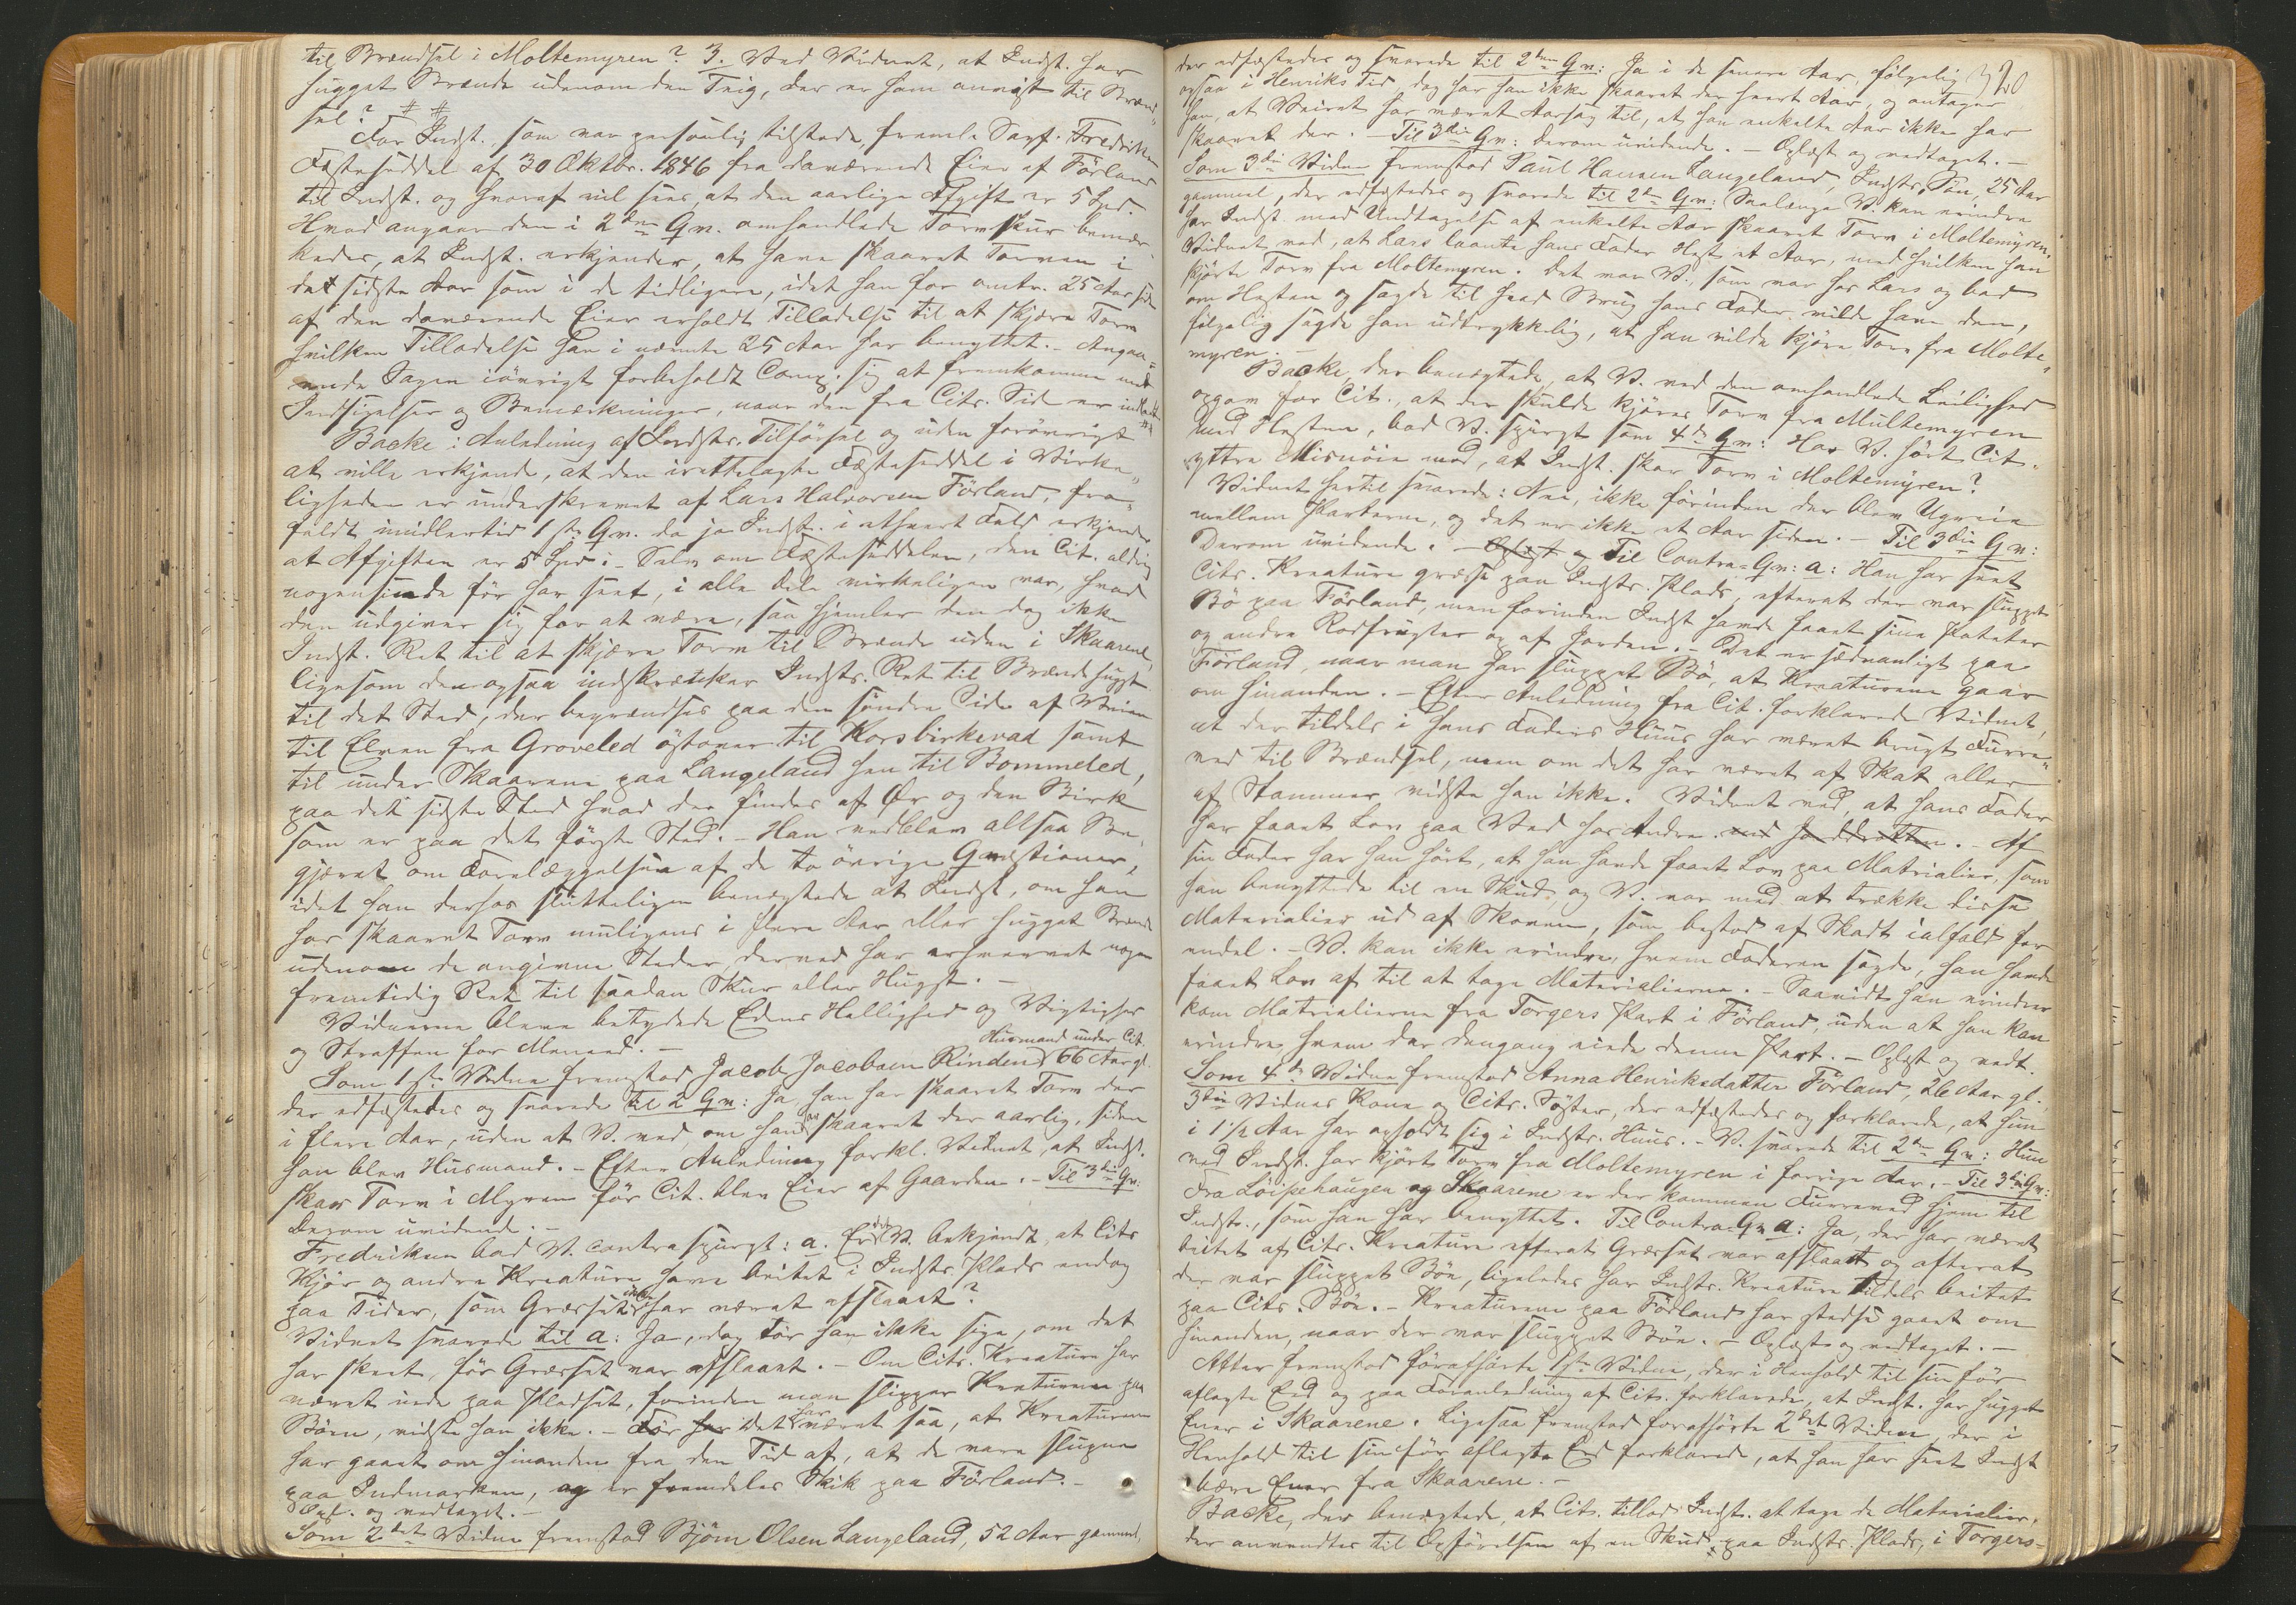 til Brændsel i Moltemyren? 3. Ved Vidnet, at Indst. har
hugget Brænde udenom den Teig, der er ham anvist til Brænd„
sel? # #
For Indst. som var personlig tilstede, freml. Sagf. Fredriksen
Fæsteseddel af 30 Oktbr. 1846 fra daværende Eier af Förland
til Indst. og hvoraf vil sees, at den aarlige Afgift er 5 Spd.
Hvad angaar den i 2den Qv. omhandlede Torvskur bemær„
kedes, at Indst. erkjender, at have skaaret Torven i
det sidste Aar som i de tidligere, idet han for omtr. 25 Aar siden
af den daværende Eier erholdt Tilladelse til at skjære Torv
hvilken Tilladelse han i nævnte 25 Aar har benyttet. – Angaa=
ende Sagen iövrigt forbeholdt Comp. sig at fremkomme med
Indsigelser og Bemærkninger, naar den fra Cits. Side er indladt
Backe: Anledning af Indsts. Tilförsel og uden forövrigt
at ville erkjende, at den irettelagte Fæsteseddel i Virke„
ligheden er underskrevet af Lars Halvorsen Förland, fra„
faldt imidlertid 1ste Qv. da jo Indst. i ethvert Fald erkjender
at Afgiften er 5 Spd: – Selv om Fæsteseddelen, den Cit. aldrig
nogensinde för har seet, i alle Dele virkeligen var, hvad
den udgiver sig for at være, saa hjemler den dog ikke
Indst. Ret til at skjære Torv til Brænde uden i Skaarene,
ligesom den ogsaa indskrænker Indsts. Ret til Brændehugst
til det Sted, der begrændses paa den söndre Side af Veien
til Elven fra Groveled östover til Korsbirkevad samt
til under Skaarene paa Langeland hen til Bommeled,
paa det sidste Sted hvad der findes af Or og den Birk
som er paa det förste Sted. – Han vedblev altsaa Be„
gjæret om Forelæggelsen af de to övrige Qvæstioner,
idet han derhos sluttelig benægtede at Indst., om han
har skaaret Torv muligens i flere Aar eller hugget Brænde
udenom de angivne Steder, derved har erhvervet nogen
fremtidig Ret til saadan Skur eller Hugst. –
Vidnerne bleve betydede Edens Hellighed og Vigtighed
og Straffen for Meneed. –
Husmand under Cit.
Som 1ste Vidne fremstod Jacob Jacobsen Rinden 66 Aar gl.
der edfæstedes og svarede til 2 Qv: Ja han har skaaret Torv der
i flere Aar, uden at V. ved, om han har skaaret der aarlig, siden
han blev Husmand. – Efter Anledning forkl. Vidnet, at Indst.
skar Torv i Myren för Cit. blev Eier af Gaarden. – Til 3die Qv.
Derom uvidende. –
Fredriksen bad V. contraspurgt: a. Er det V. bekjendt, at Cits
Kjör og andre Kreature have beitet i Indsts. Plads endog
paa Tider, som Græsset ikke har været afslaaet?
Vidnet svarede til a: Ja, dog tör han ikke sige, om det
har skeet, för Græsset var afslaaet. – Om Cits. Kreature har
været nede paa Pladset, forinden man slipper Kreturene paa
Böen, vidste han ikke. – För har det har været saa, at Kreaturene
har gaaet om hinanden fra den Tid af, at de vare slupne
paa Indmarken, og er fremdeles Skik paa Förland. –
Opl. og vedtaget. –
Som 2det Vidne fremstod Björn Olsen Langeland, 52 Aar gammel,
320
der edfæstedes og svarede til 2den Qv: Ja i de senere Aar, fölgelig
ogsaa i Henriks Tid, dog har han ikke skaaret der hvert Aar, og antager
han, at Veiret har været Aarsag til, at han enkelte Aar ikke har
skaaret der. – Til 3die Qv: Derom uvidende. – Oplæst og vedtaget. –
Som 3die Vidne fremstod Paul Hansen Langeland, Indsts. Sön, 25 Aar
gammel, der edfæstedes og svarede til 2den Qv: Saalænge V. kan erindre
har Indst. med Undtagelse af enkelte Aar skaaret Torv i Moltemyren.
Vidnet ved, at Lars laante hans Fader Hest et Aar, med hvilken han
kjörte Torv fra Moltemyren. Det var V., som var hos Lars og bad
om Hesten og sagde til hvad Brug hans Fader vilde have den,
fölgelig sagde han udtrykkelig, at han vilde kjöre Torv fra Molte„
myren. –
Backe, der benægtede, at V. ved den omhandlede Leilighed
opgav for Cit., at der skulde kjöres Torv fra Multemyren
med Hesten, bad V. spurgt som 4de Qv: Har V. hört Cit.
yttre Misnöie med, at Indst. skar Torv i Moltemyren?
Vidnet hertil svarede: Nei, ikke förinden der blev Ugreie
mellem Parterne, og det er ikke et Aar siden. – Til 3die Qv:
Derom uvidende. – Oplæst og Til Contra-Qv: a: Han har seet
Cits. Kreature græsse paa Indsts. Plads, efterat der var sluppet
Bö paa Förland, men forinden Indst havde faaet sine Poteter
og andre Rodfrugter op af Jorden. – Det er sædvanligt paa
Förland, naar man har sluppet Bö, at Kreaturene gaar
om hinanden. – Efter Anledning fra Cit. forklarede Vidnet,
at der tildels i hans Faders Huus har været brugt Furre„
ved til Brændsel, men om det har været af Skat eller
af Stammer vidste han ikke. Vidnet ved, at hans Fader
har faaet Lov paa Ved hos Andre. – Af
sin Fader har han hört, at han havde faaet Lov paa Matrialier, som
han benyttede til en Skud, og V. var med at trække disse
Materialier ud af Skoven, som bestod af Skadt ialfald for
endel. – V. kan ikke erindre, hvem Faderen sagde, han havde
faaet Lov af til at tage Materialierne. – Saavidt han erindrer
kom Matrialierne fra Torgers Part i Förland, uden at han kan
erindre hvem der dengang eiede denne Part. – Oplæst og vedt.
Som 4de Vidne fremstod Anna Henriksdatter Förland, 26 Aar gl.,
3die Vidnes Kone og Cits. Söster, der edfæstedes og forklarede, at hun
i 1½ Aar har opholdt sig i Indsts. Huus. – V. svarede til 2den Qv: Hun
ved Indst. har kjört Torv fra Moltemyren i forrige Aar. – Til 3die Qv:
Fra Löipehaugen og Skaarene er der kommen Furreved hjem til
Indst., som han har benyttet. Til Contra-Qv a: Ja, der har været
beitet af Cits. Kreature efterat Græsset var afslaaet og efterat
der var sluppet Böe, ligeledes har Indsts. Kreature tildels beitet
paa Cits. Böe. – Kreaturene paa Förland har stedse gaaet om
hinanden, naar der var sluppet Böe. – Oplæst og vedtaget. –
Atter fremstod förafhörte 1ste Vidne, der i Henhold til sin för
aflagte Eed og paa Foranledning af Cits. forklarede, at Indst. har hugget
Ener i Skaarene. Ligesaa fremstod forafhörte 2det Vidne, der i
Henhold til sin för aflagte Eed forklarede, at han har seet Indst
bære Ener fra Skaarene. –
Backe, der benægtede, at Cit. tillod Indst. at tage de Materialier,
der anvendtes til Opförelsen af en Skud paa Indsts. Plads, i Torgers-